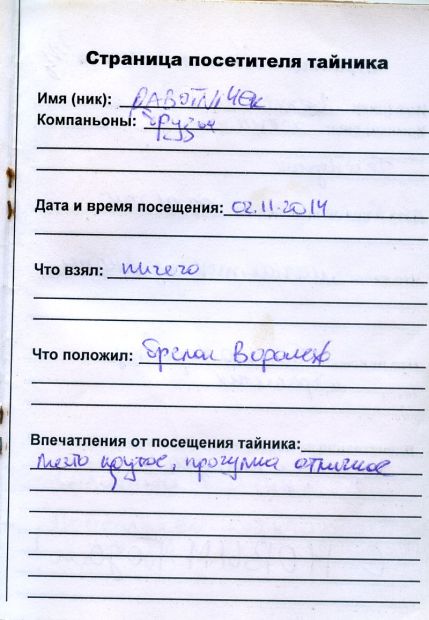 Страница посетителя тайника
Имя (ник): РАБОТNИЧЕК
Компаньоны: друзья
Дата и время посещения: 02.11.2014
Что взял: ничего
Что положил: брелок Воронеж
Впечатления от посещения тайника:
место крутое, прогулка отличное